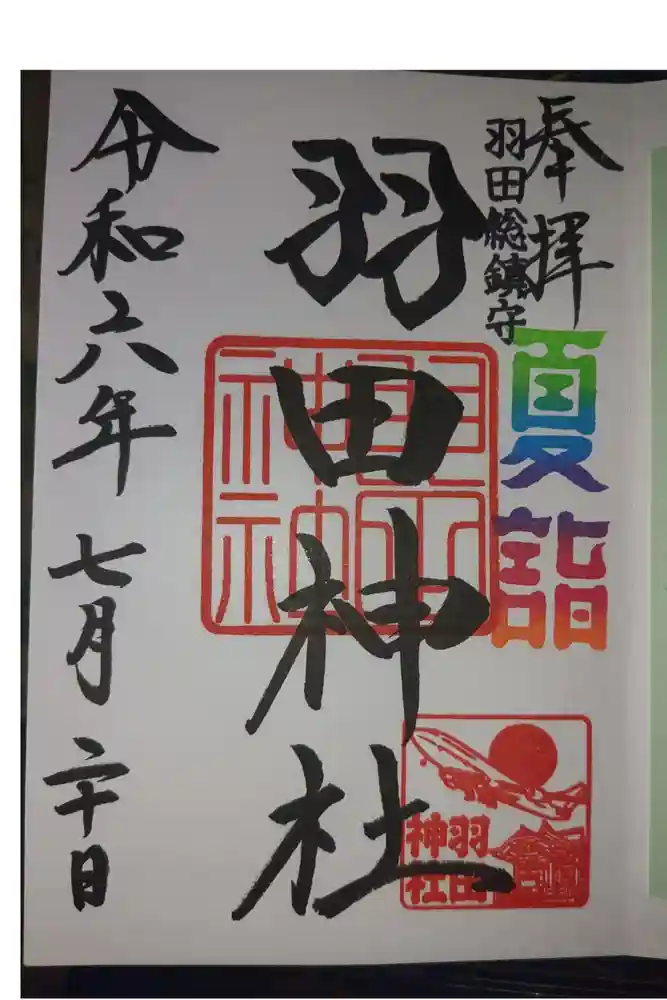 奉拝
羽田総鎮守
夏詣
羽田神社
羽田
神社
令和六年七月二十日